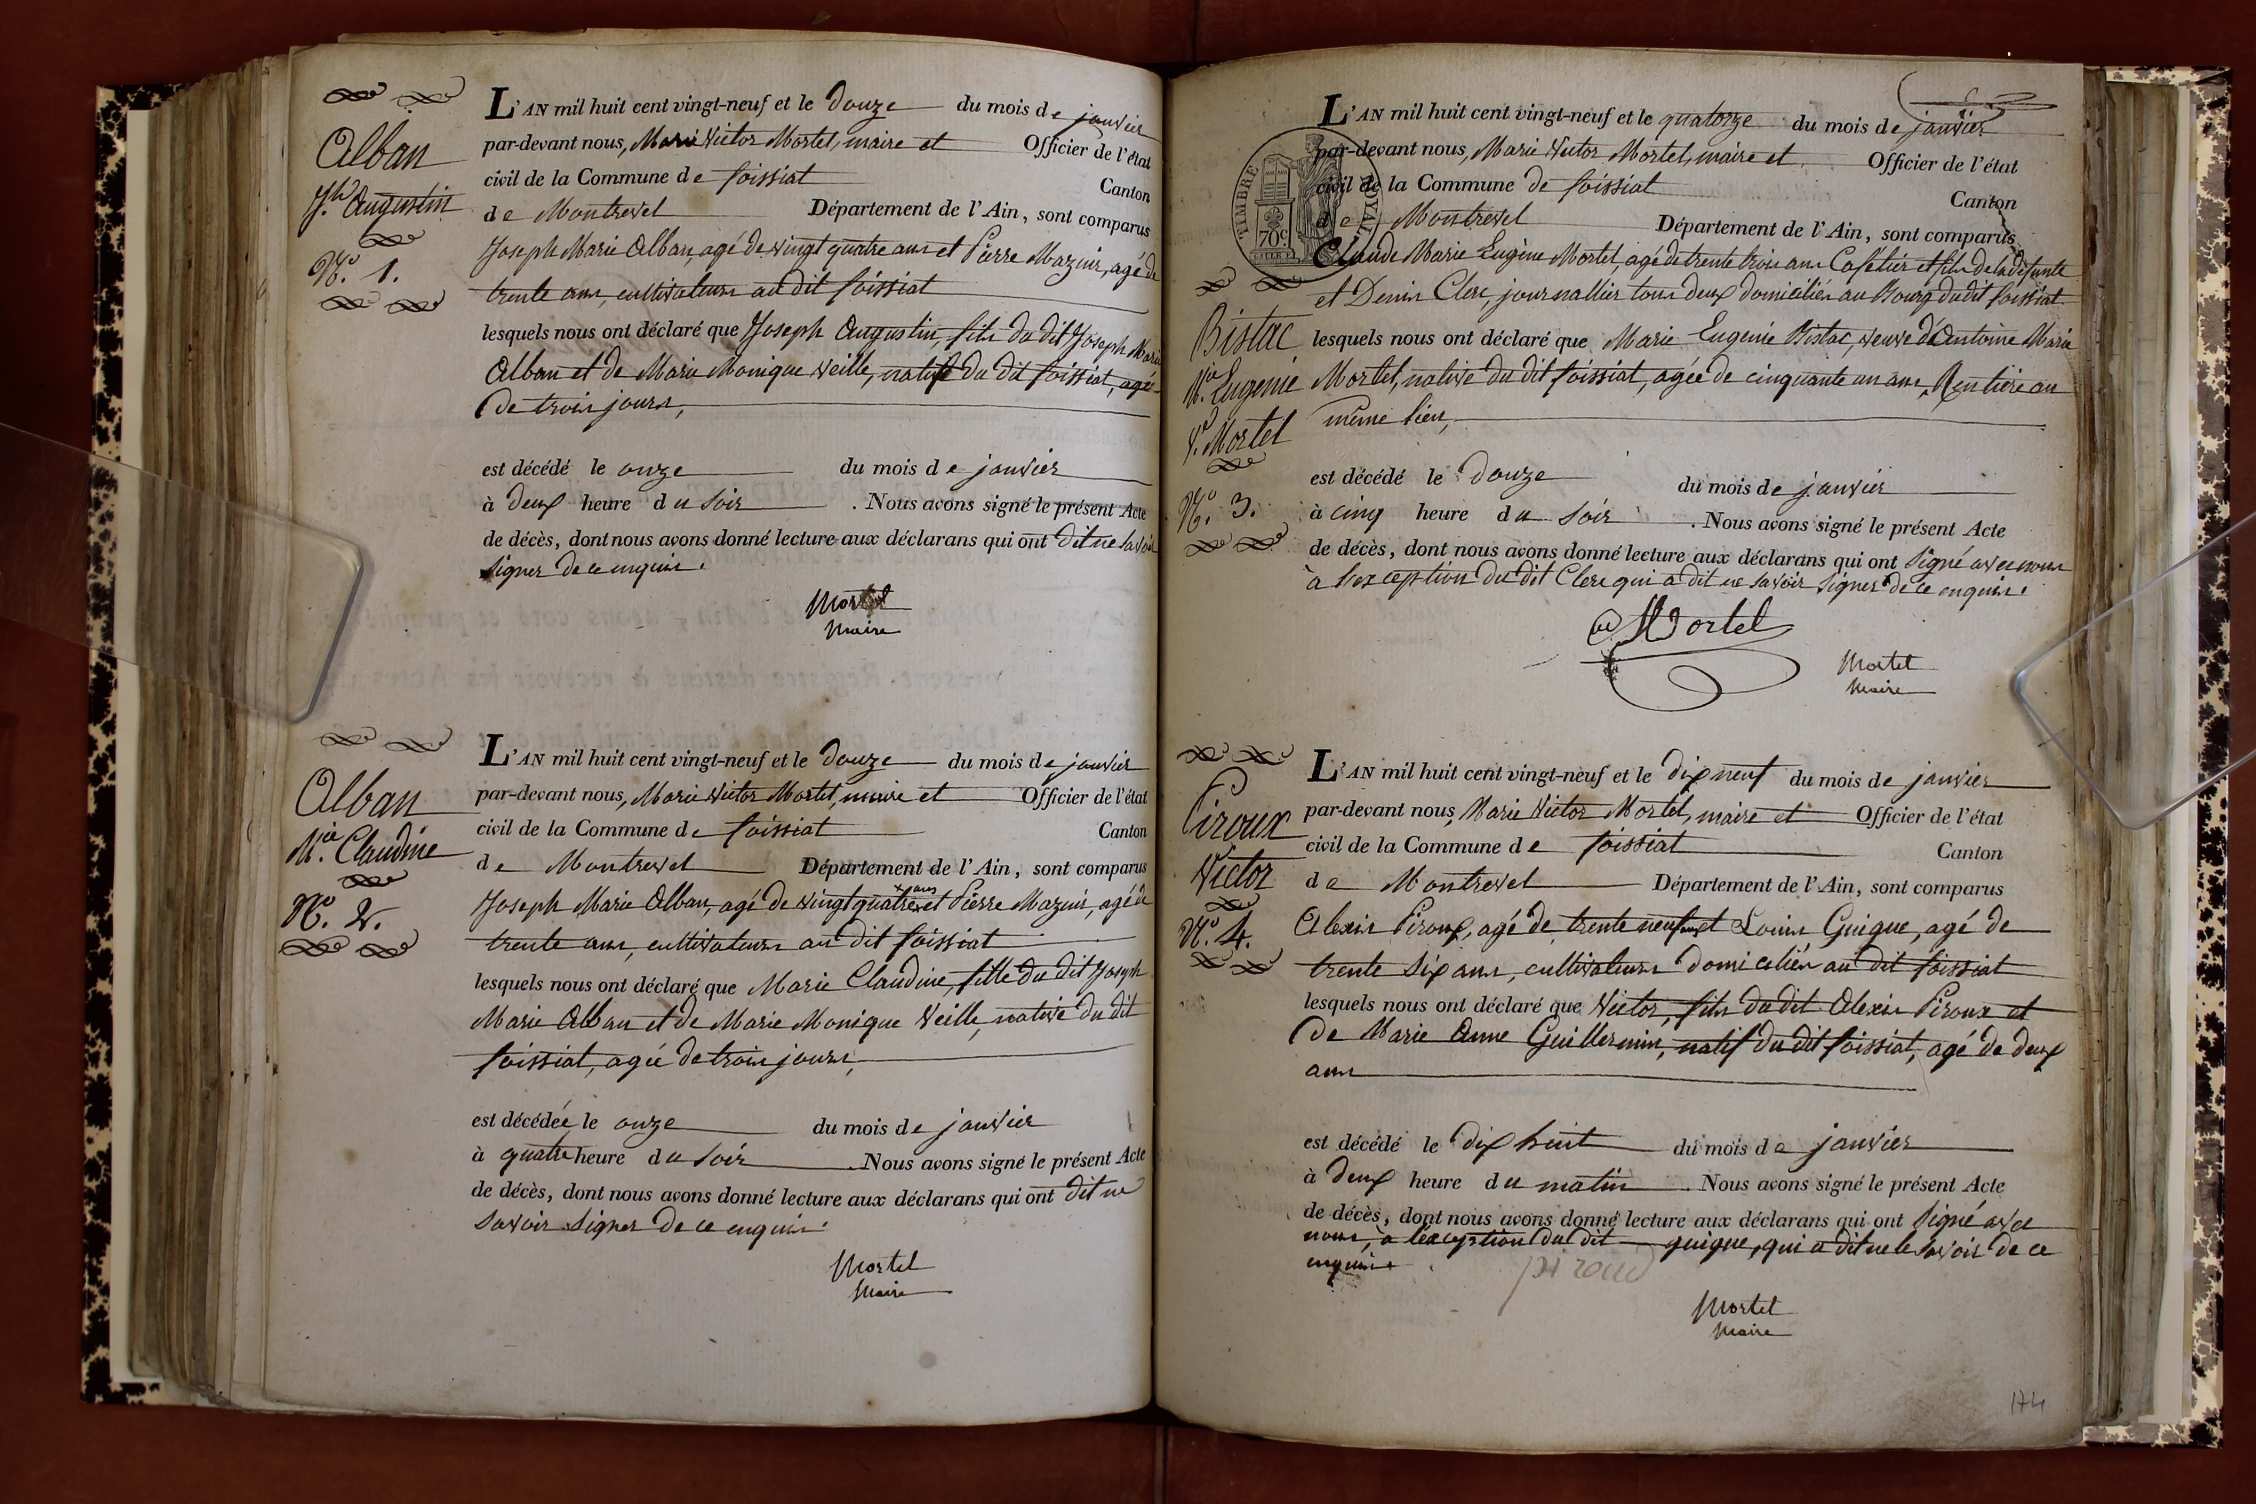 Alban
Jh. Augustin
N.° 1.
L'AN mil huit cent vingt-neuf et le douze du mois de janvier
par-devant nous, Marie Victor Mortel, maire et Officier de l'état
civil de la Commune de foissiat Canton
de Montrevel Département de l'Ain, sont comparus
Joseph Marie Alban, agé de vingt quatre ans et Pierre Mazuir, agé de
trente ans, cultivateurs au dit foissiat
lesquels nous ont déclaré que Joseph Augustin, fils du dit Joseph Marie
Alban et de Marie Monique Veille, natif du dit foissiat, agé
de trois jours,
est décédé le onze du mois de janvier
à deux heure du soir. Nous avons signé le présent Acte
de décès, dont nous avons donné lecture aux déclarans qui ont dit ne savoir
signer de ce enquis.
Mortel
Maire
Alban
M.ie Claudine
N.° 2.
L'AN mil huit cent vingt-neuf et le douze du mois de janvier
par-devant nous, Marie Victor Mortel, maire et Officier de l'état
civil de la Commune de foissiat Canton
de Montrevel Département de l'Ain, sont comparus
Joseph Marie Alban, agé de vingt quatre ans et Pierre Mazuir, agé de
trente ans, cultivateurs au dit foissiat
lesquels nous ont déclaré que Marie Claudine, fille du dit Joseph
Marie Alban et de Marie Monique Veille, native du dit
foissiat, agée de trois jours,
est décédée le onze du mois de janvier
à quatre heure du soir. Nous avons signé le présent Acte
de décès, dont nous avons donné lecture aux déclarans qui ont dit ne
savoir signer de ce enquis.
Mortel
Maire
TIMBRE ROYAL
70c
Bistac
M.ie Eugenie
V.e Mortel
N.° 3.
L'AN mil huit cent vingt-neuf et le quatorze du mois de janvier
par-devant nous, Marie Victor Mortel, maire et Officier de l'état
civil de la Commune de foissiat Canton
de Montrevel Département de l'Ain, sont comparus
Claude Marie Eugène Mortel, agé de trente trois ans Cafetier et fils de la défunte
et Denis Clerc, journallier tous deux domiciliés au Bourg du dit foissiat
lesquels nous ont déclaré que Marie Eugenie Bistac, veuve d'Antoine Marie
Mortel, native du dit foissiat, agée de cinquante un ans, Rentière au
même lieu,
est décédé le douze du mois de janvier
à cinq heure du soir. Nous avons signé le présent Acte
de décès, dont nous avons donné lecture aux déclarans qui ont signé avec nous
à l'exception du dit Clerc qui a dit ne savoir signer de ce enquis.
Mortel
Mortel
Maire
Piroux
Victor
N.° 4.
L'AN mil huit cent vingt-neuf et le dix neuf du mois de janvier
par-devant nous, Marie Victor Mortel, maire et Officier de l'état
civil de la Commune de foissiat Canton
de Montrevel Département de l'Ain, sont comparus
Alexis Piroux, agé de trente neuf ans et Louis Guigue, agé de
trente six ans, cultivateurs domiciliés au dit foissiat
lesquels nous ont déclaré que Victor, fils du dit Alexis Piroux et
de Marie Anne Guillermin, natif du dit foissiat, agé de deux
ans
est décédé le dix huit du mois de janvier
à deux heure du matin. Nous avons signé le présent Acte
de décès, dont nous avons donné lecture aux déclarans qui ont signé avec
nous, à l'exception du dit guigue, qui a dit ne le savoir de ce
enquis
piroud
Mortel
Maire
174